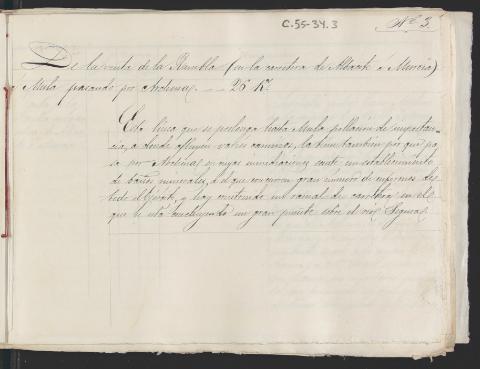 C.55-34.3
Nº 3.
De la venta de la Rambla (en la carretera de Albacete á Murcia)
á Mula pasando por Archena, 26 K.s
Esta linea que se prolonga hasta Mula poblacion de importan-
cia, a donde afluyen varios caminos, la tiene tambien por que pa-
sa por Archena en cuyas inmediaciones existe un establecimiento
de baños minerales, á el que concurren gran número de enfermos des-
de el y hoy contiende un ramal de carretera en el
que se está concluyendo un gran puente sobre el rio Segura